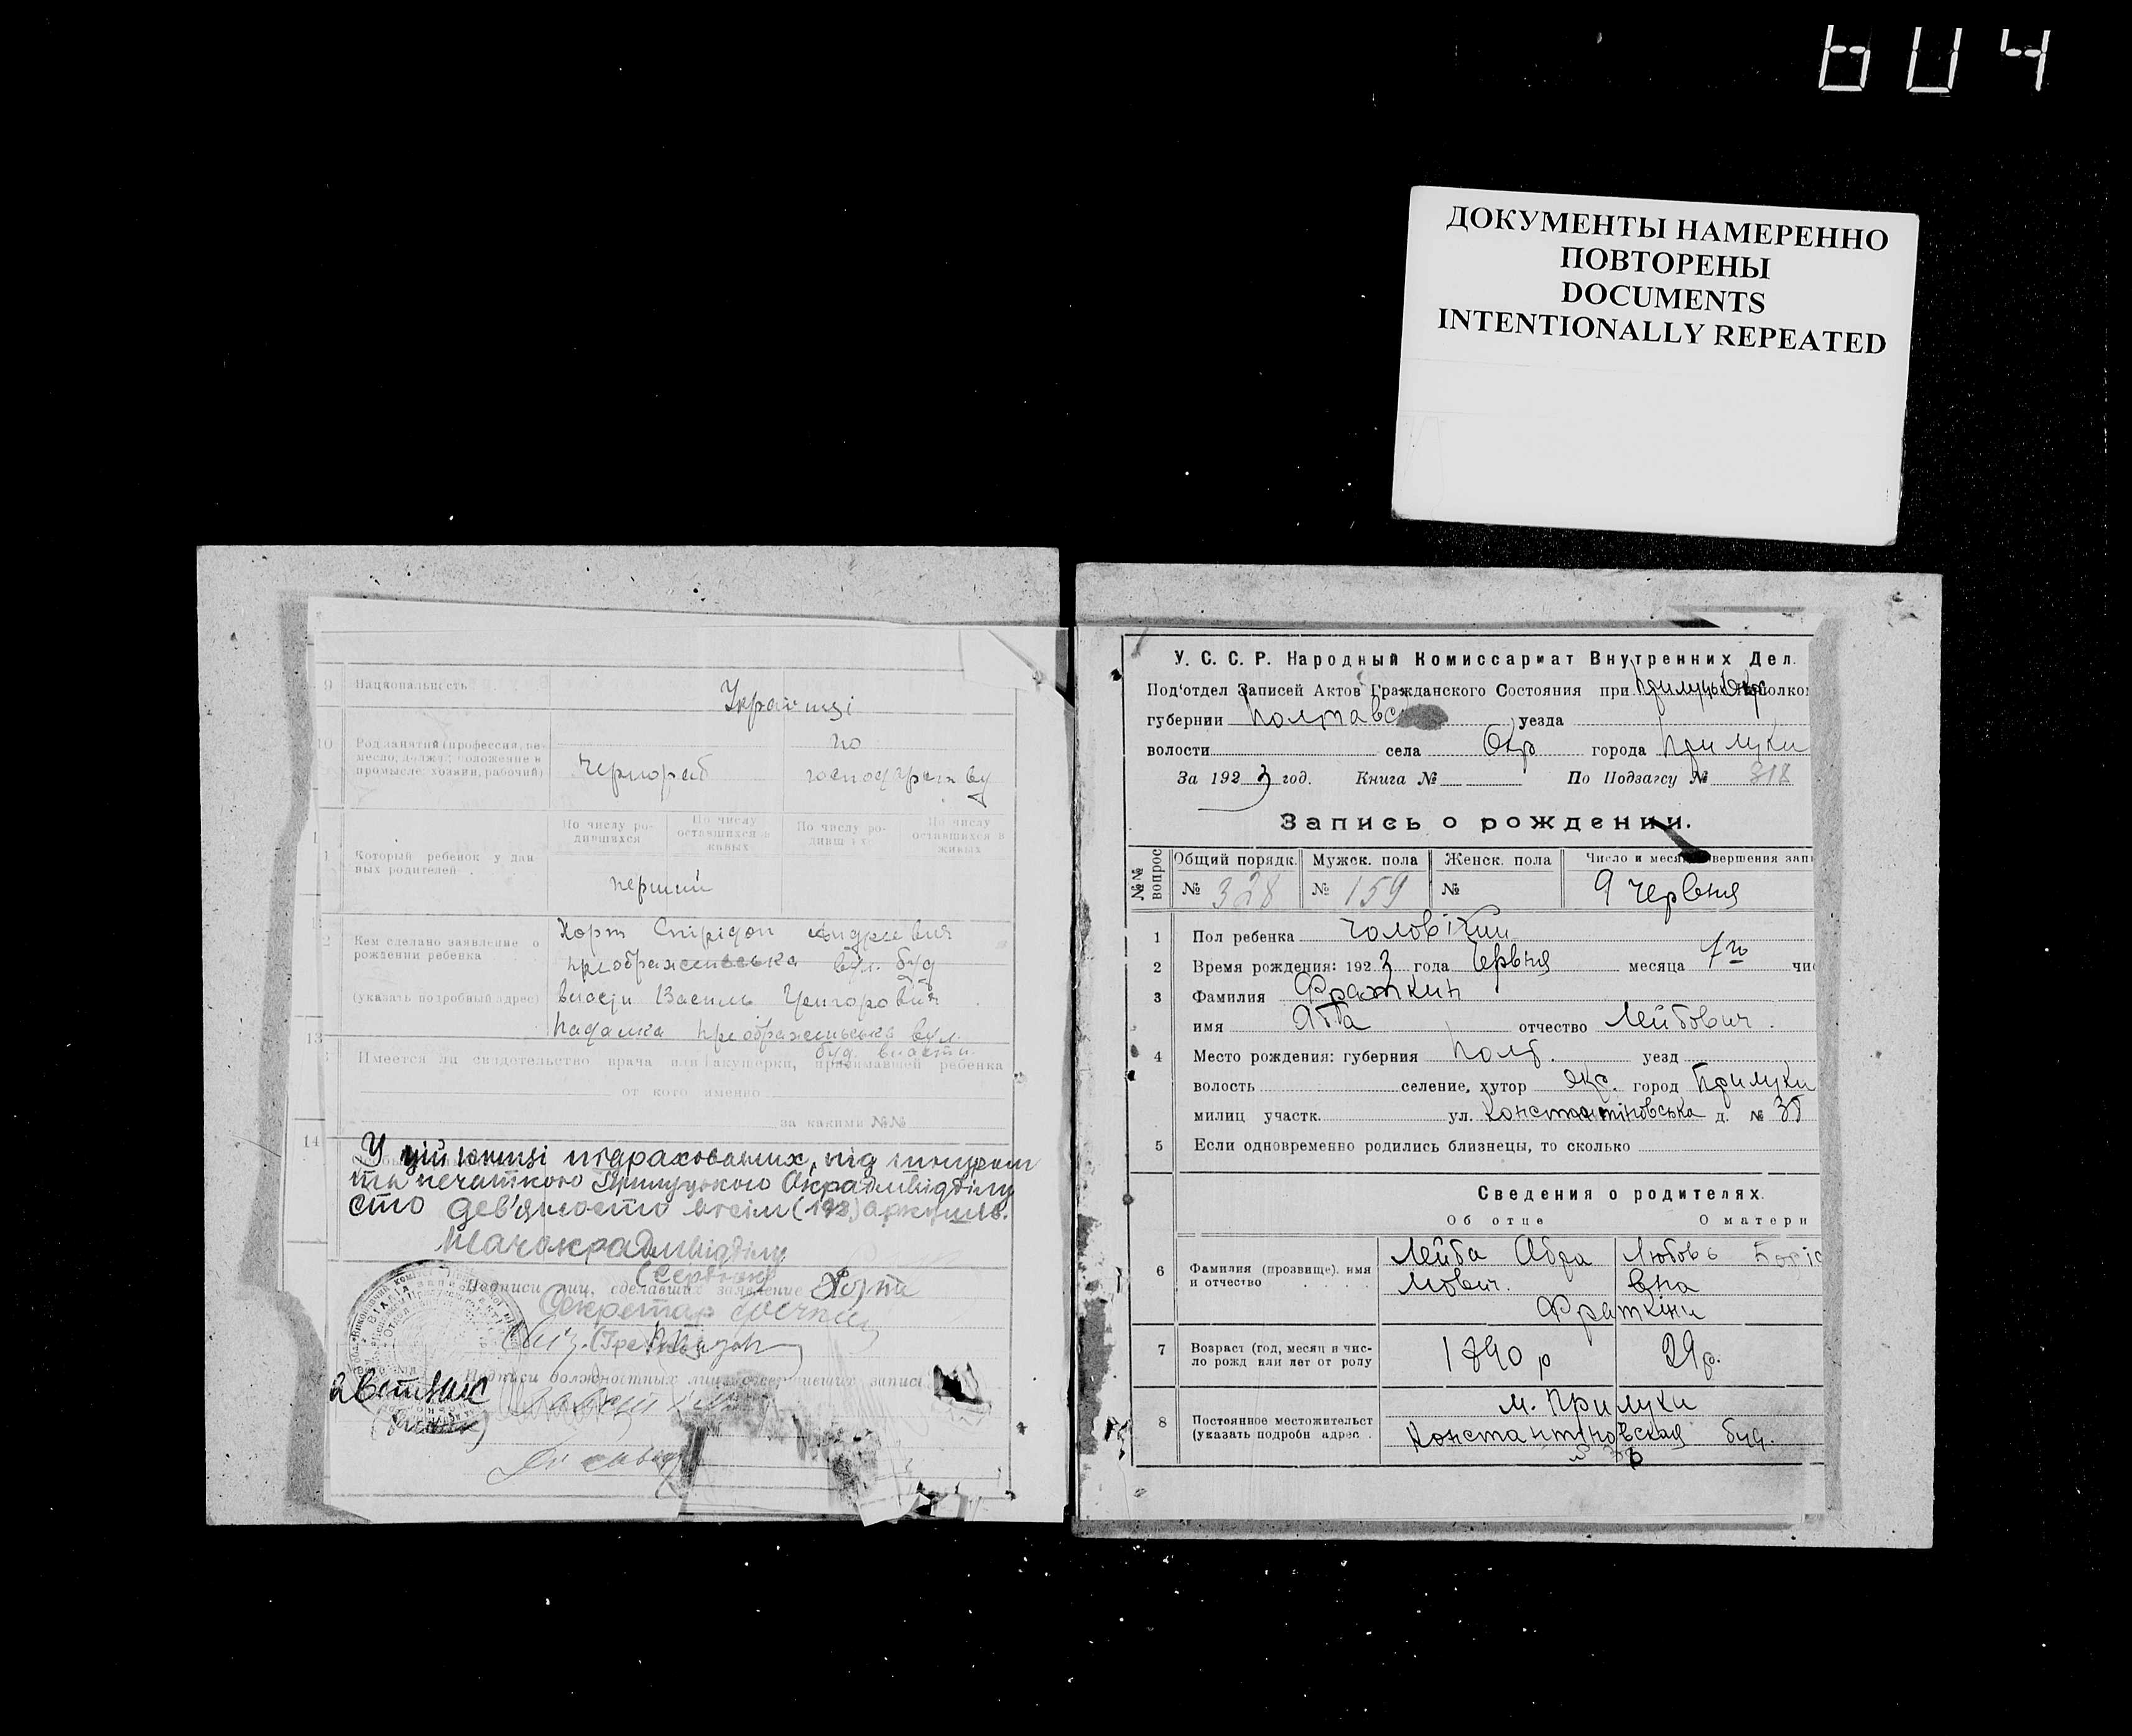 604
ДОКУМЕНТЫ НАМЕРЕННО
ПОВТОРЕНЫ
DOCUMENTS
INTENTIONALLY REPEATED
9 Национальность
Українці
10 Род занятий (профессия, ре-
месло, должн.; положение в
промысле: хозяин, рабочий)
Чернороб
по
господарству
По числу ро-
дившихся
По числу
оставшихся в
живых
По числу ро-
дивш
По числу
оставшихся в
живых
Который ребенок у дан-
ных родителей
перший
Кем сделано заявление о
рождении ребенка
(указать подробный адрес)
Хорт Спірідон Андрієвич
преображенська вул. буд
Василь Григорович
преображенська вул.
буд.
13
Имеется ли свидетельство врача или акушерки, принимавшей ребенка
от кого именно
за какими №№
14
У цій книзі підрахованих, під шнуром
та печаткою Прилуцького Окрадмвідділу
сто дев'яносто вісім (198) аркушів.
Начокрадмвідділу
Подписи лиц, сделавших заявление
Секретар
Подписи должностных лиц, совершивших запись
У. С. С. Р. Народный Комиссариат Внутренних Дел.
Под'отдел Записей Актов Гражданского Состояния при
губернии Полтавс уезда
волости села Окр города Прилуки
За 1923 год. Книга № По Подзагсу № 318
Запись о рождении.
№№ вопрос
Общий порядк. Мужск. пола Женск. пола
№ 328 № 159 № 9 червня
1 Пол ребенка чоловічий
2 Время рождения: 1923 года Червня месяца 7го
3 Фамилия Фраткин
имя Абба отчество Лейбович.
4 Место рождения: губерния Полт. уезд
волость селение, хутор окр. город Прилуки
милиц участк. ул. Константіновська д. №
5 Если одновременно родились близнецы, то сколько
Сведения о родителях.
Об отце О матери
6 Фамилия (прозвище), имя
и отчество
Лейба Абра Любовь Боріс
мович. вна
Фраткіни
7 Возраст (год, месяц и чис-
ло рожд или лет от роду
1890 р 29 р.
8 Постоянное местожительст
(указать подробн адрес
м. Прилуки
Константіновская буд.